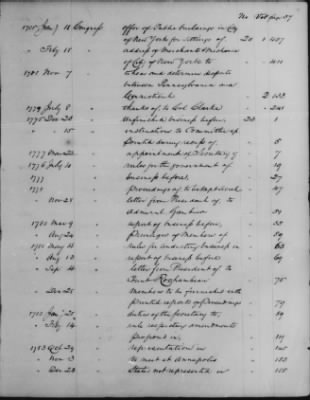 No Vol page 37
1785 Jan'y 11 Congress offer of Public buildings in City
of New York for sittings of 20 1 407
" Feb 11 " address of Merchants & Mechanics
of City of New York to 411
1781 Nov 7 " to hear and determine dispute
between Pennsylvania and
Connecticut 2 133
1779 July 8 " thanks of, to Col Clarke 241
1775 Dec 20 " Unfinished business before 23 1
" " 15 " instructions to Committee
during recess of 5
1777 " appointment of Secretary of 7
1776 July 10 " rules for the government of 19
1777 " business before, 27
1778 " proceedings of to be 47
" Nov 28 " letter from President of, to
Admiral Gambier 51
1780 Mar 9 " report of business before,
" Aug 24 " privileges of Members of 59
1781 May 4 " rules for conducting business in 63
" Aug 13 " report of business before 69
" Sep 4 " letter from President of to
Count Rochambeau 75
" Dec 25 " Members to be furnished with
printed reports of proceedings 79
1782 Jan'y " duties of the Secretary to, 89
" Feb 14 " rule respecting amendments
proposed in,
1783 Oct 29 " representation in
" Nov 3 " to meet at Annapolis
" Dec 23 " States not represented in